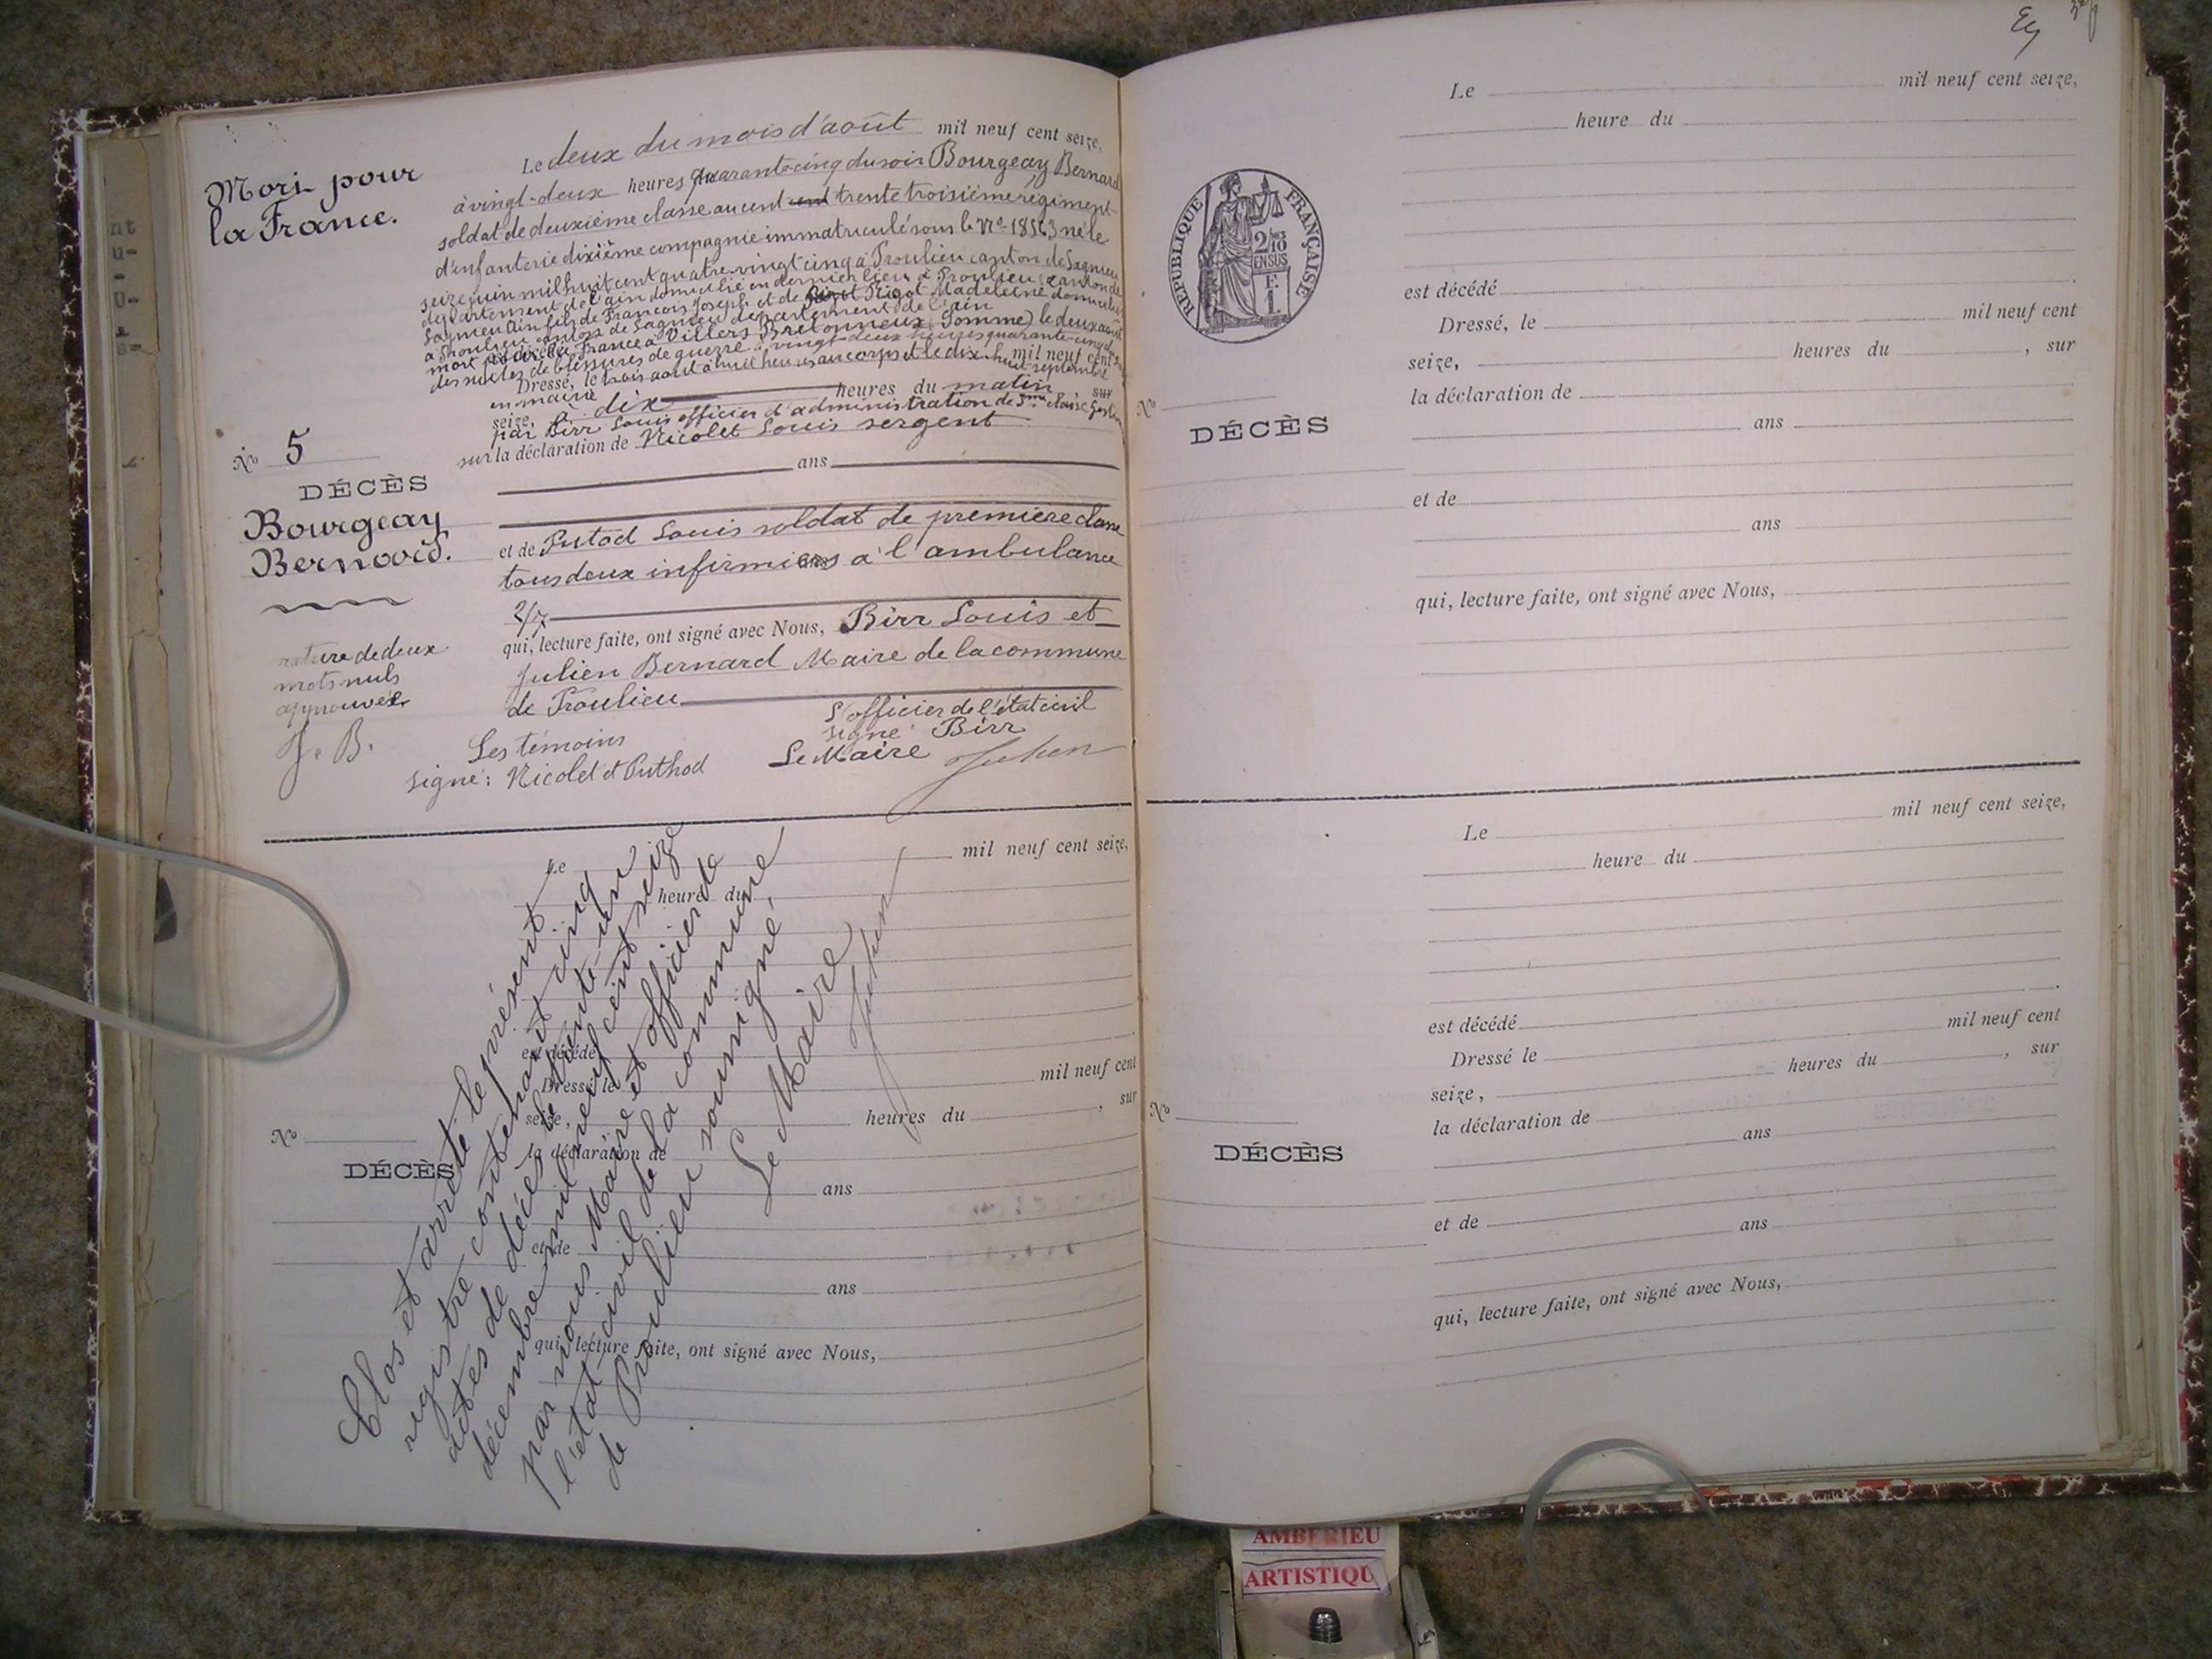 Mort pour
la France.
Le deux du mois d'août mil neuf cent seize,
à vingt-deux heures quarante cinq du soir Bourgeay Bernard
soldat de deuxième classe au cent cent trente troisième régiment
d'infanterie dixième compagnie immatriculé sous le No 18563 né le
seize juin mil huit cent quatre-vingt cinq à Proulieu canton de Lagnieu
département de l'ain domicilié en dernier lieu à Proulieu canton de
Lagnieu Ain fils de François Joseph et de Rigot Madeleine domiciliés
à Proulieu canton de Lagnieu département de l'ain
mort pour la France à Villers Bretonneux (Somme) le deux août
des suites de blessures de guerre à vingt-deux heures quarante-cinq
Dressé, le trois août à huit heures au corps et le dix-huit septembre mil neuf cent
en mairie
seize, à dix heures du matin sur
par Birr Louis officier d'administration de 3me classe
sur la déclaration de Nicolet Louis sergent
ans
No 5
DÉCÈS
Bourgeay
Bernard.
et de Putod Louis soldat de première classe
tous deux infirmiers à l'ambulance
2/7
qui, lecture faite, ont signé avec Nous, Birr Louis et
Julien Bernard Maire de la commune
de Proulieu
rature de deux
mots nuls
approuvée
J. B.
L'officier de l'état civil
signé Birr
Les témoins
signé: Nicolet et Puthod
Le Maire Julien
Le mil neuf cent seize,
heure du
est décédé
Dressé le mil neuf cent
seize, heures du , sur
la déclaration de
No
DÉCÈS
ans
et de
ans
qui, lecture faite, ont signé avec Nous,
Clos et arrêté le présent
registre contenant cinq
actes de décès le trente-un
décembre mil neuf cent seize
par nous Maire et officier de
l'état civil de la commune
de Proulieu soussigné.
Le Maire
Julien
Le mil neuf cent seize,
heure du
RÉPUBLIQUE FRANÇAISE
2/10
EN SUS
F.
1.
est décédé
Dressé, le mil neuf cent
seize, heures du , sur
la déclaration de
No
DÉCÈS
ans
et de
ans
qui, lecture faite, ont signé avec Nous,
Le mil neuf cent seize,
heure du
est décédé
Dressé le mil neuf cent
seize, heures du , sur
la déclaration de
No
DÉCÈS
ans
et de
ans
qui, lecture faite, ont signé avec Nous,
AMBERIEU
ARTISTIQU